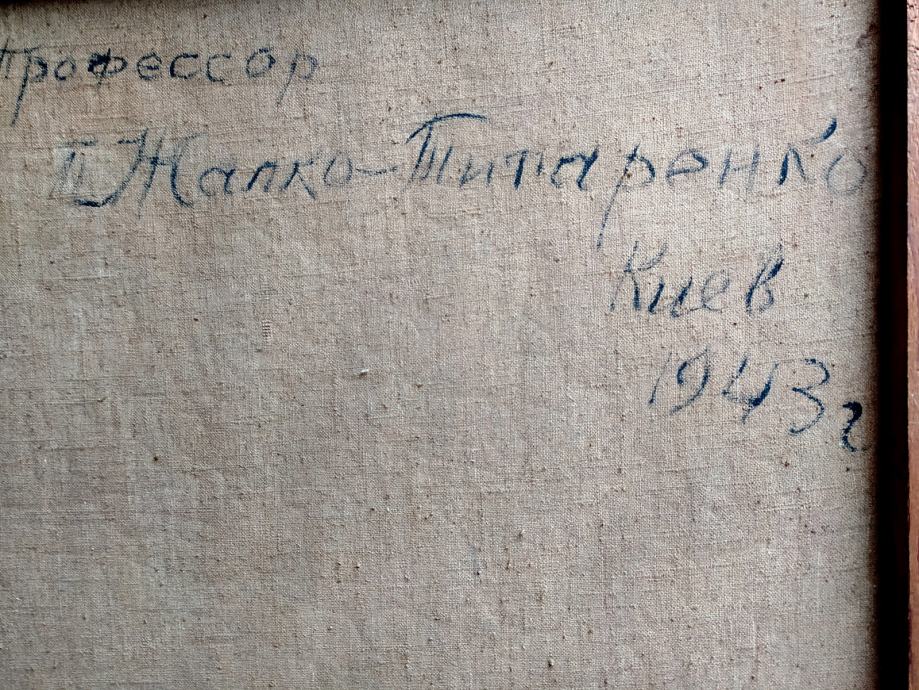 Профессор
П Жалко-Титаренко
Киев
1943 г